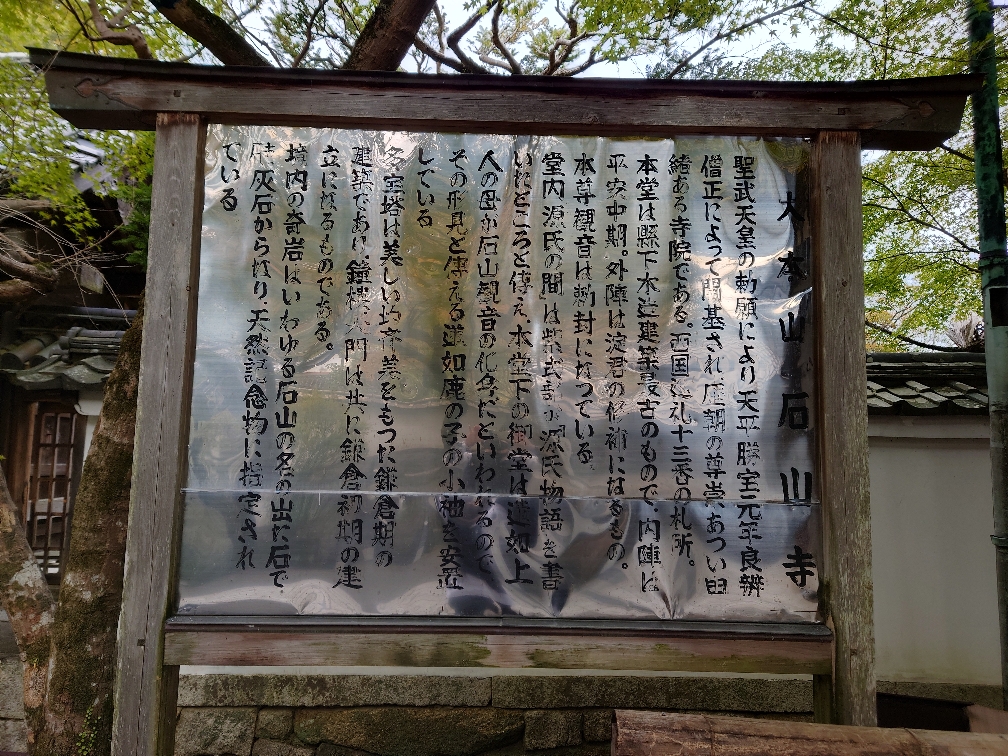 大本山石山寺
聖武天皇の勅願により天平勝宝元年良辨
僧正によって開基され歴朝の尊崇あつい由
緒ある寺院である。西国巡礼十三番の札所。
本堂は縣下木造建築最古のもので、内陣は
平安中期。外陣は淀君の修補になるもの。
本尊観音は勅封になっている
堂内『源氏の間』は紫式部が『源氏物語』を書
いたところと傳え、本堂下の御堂は蓮如上
人の母が石山観音の化身だといわれるので
その形見と傳える蓮如鹿の子の小袖を安置
している
多宝塔は美しい均斉美をもつた鎌倉期の
建築であり、鐘楼、大門は共に鎌倉初期の建
立になるものである。
境内の奇岩はいわゆる石山の名の出た石で、
硅灰石からなり天然記念物に指定され
ている